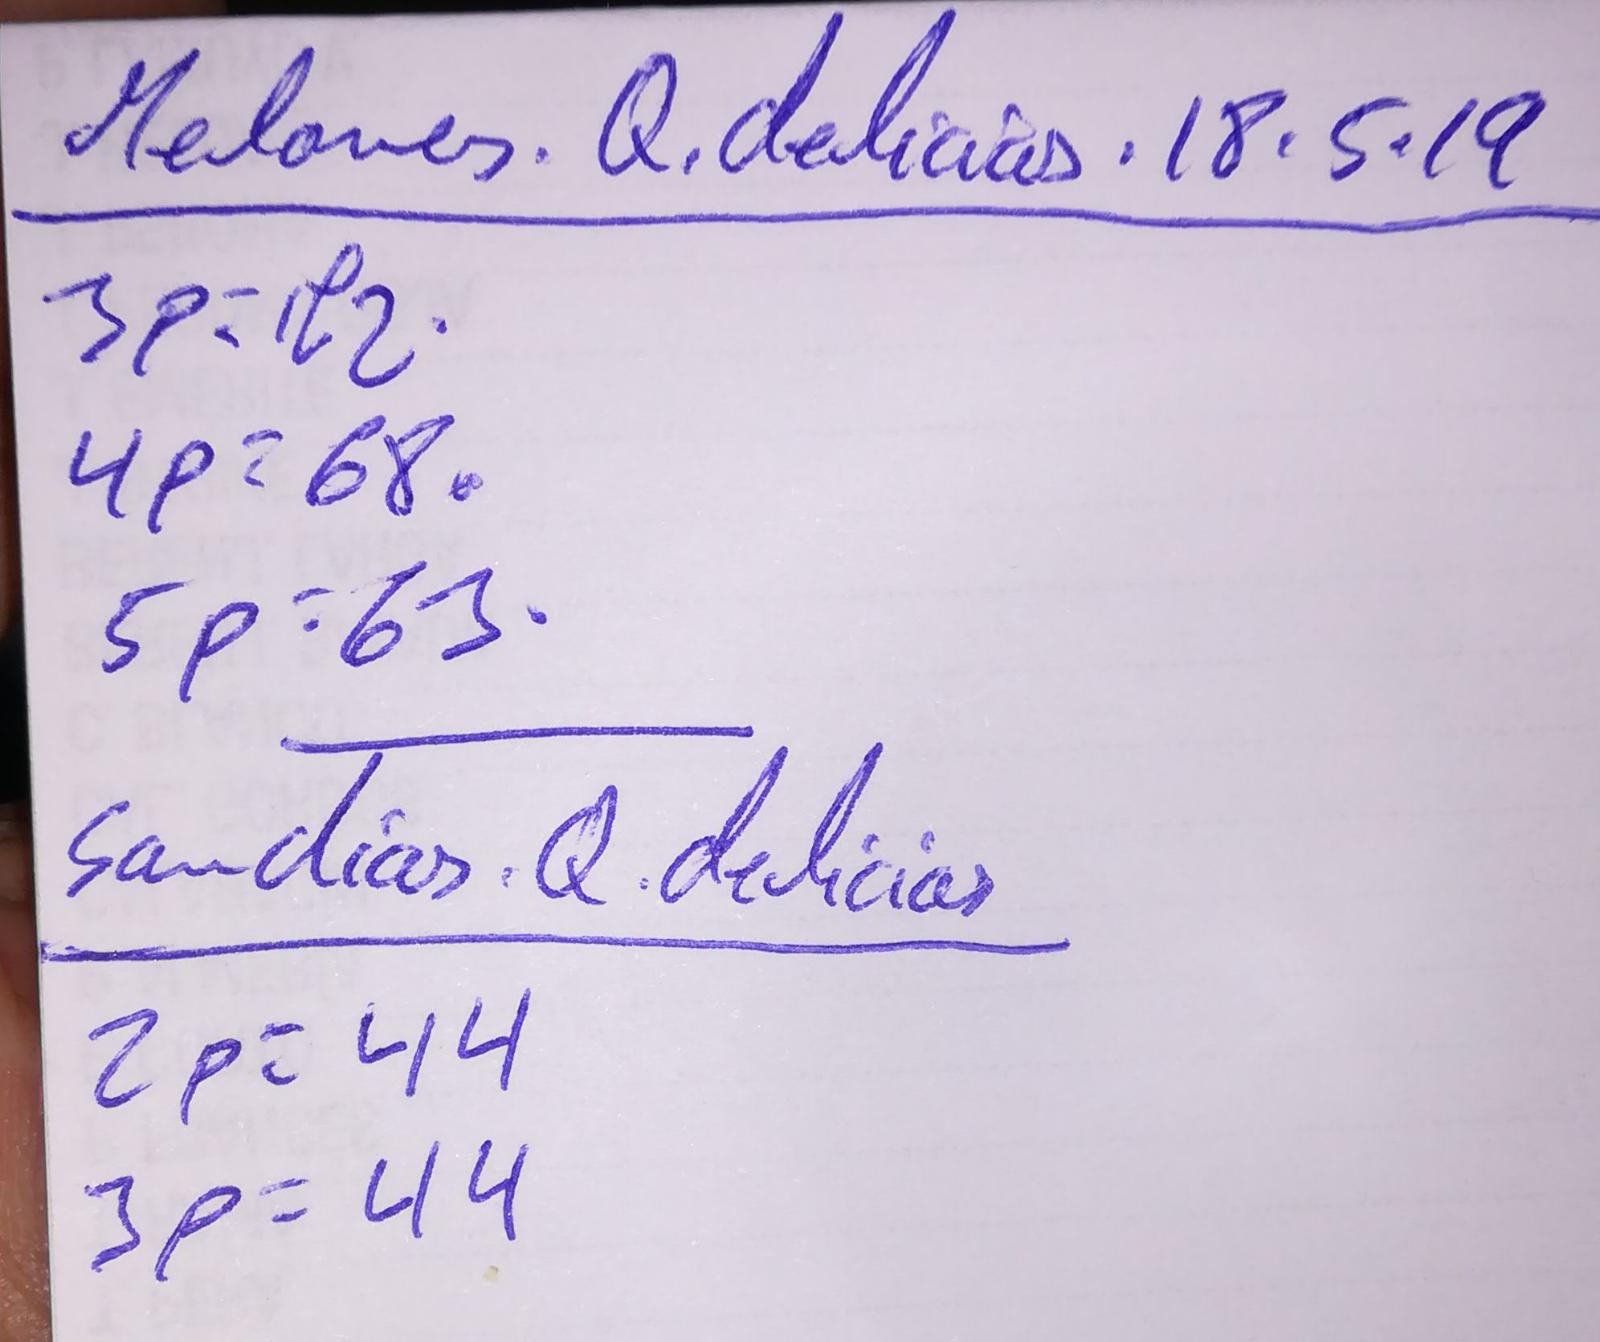 Melones. Q. delicias. 18.5.19
3p=
4p=68.
5p=63.
Sandias. Q. delicias
2p=44
3p=44